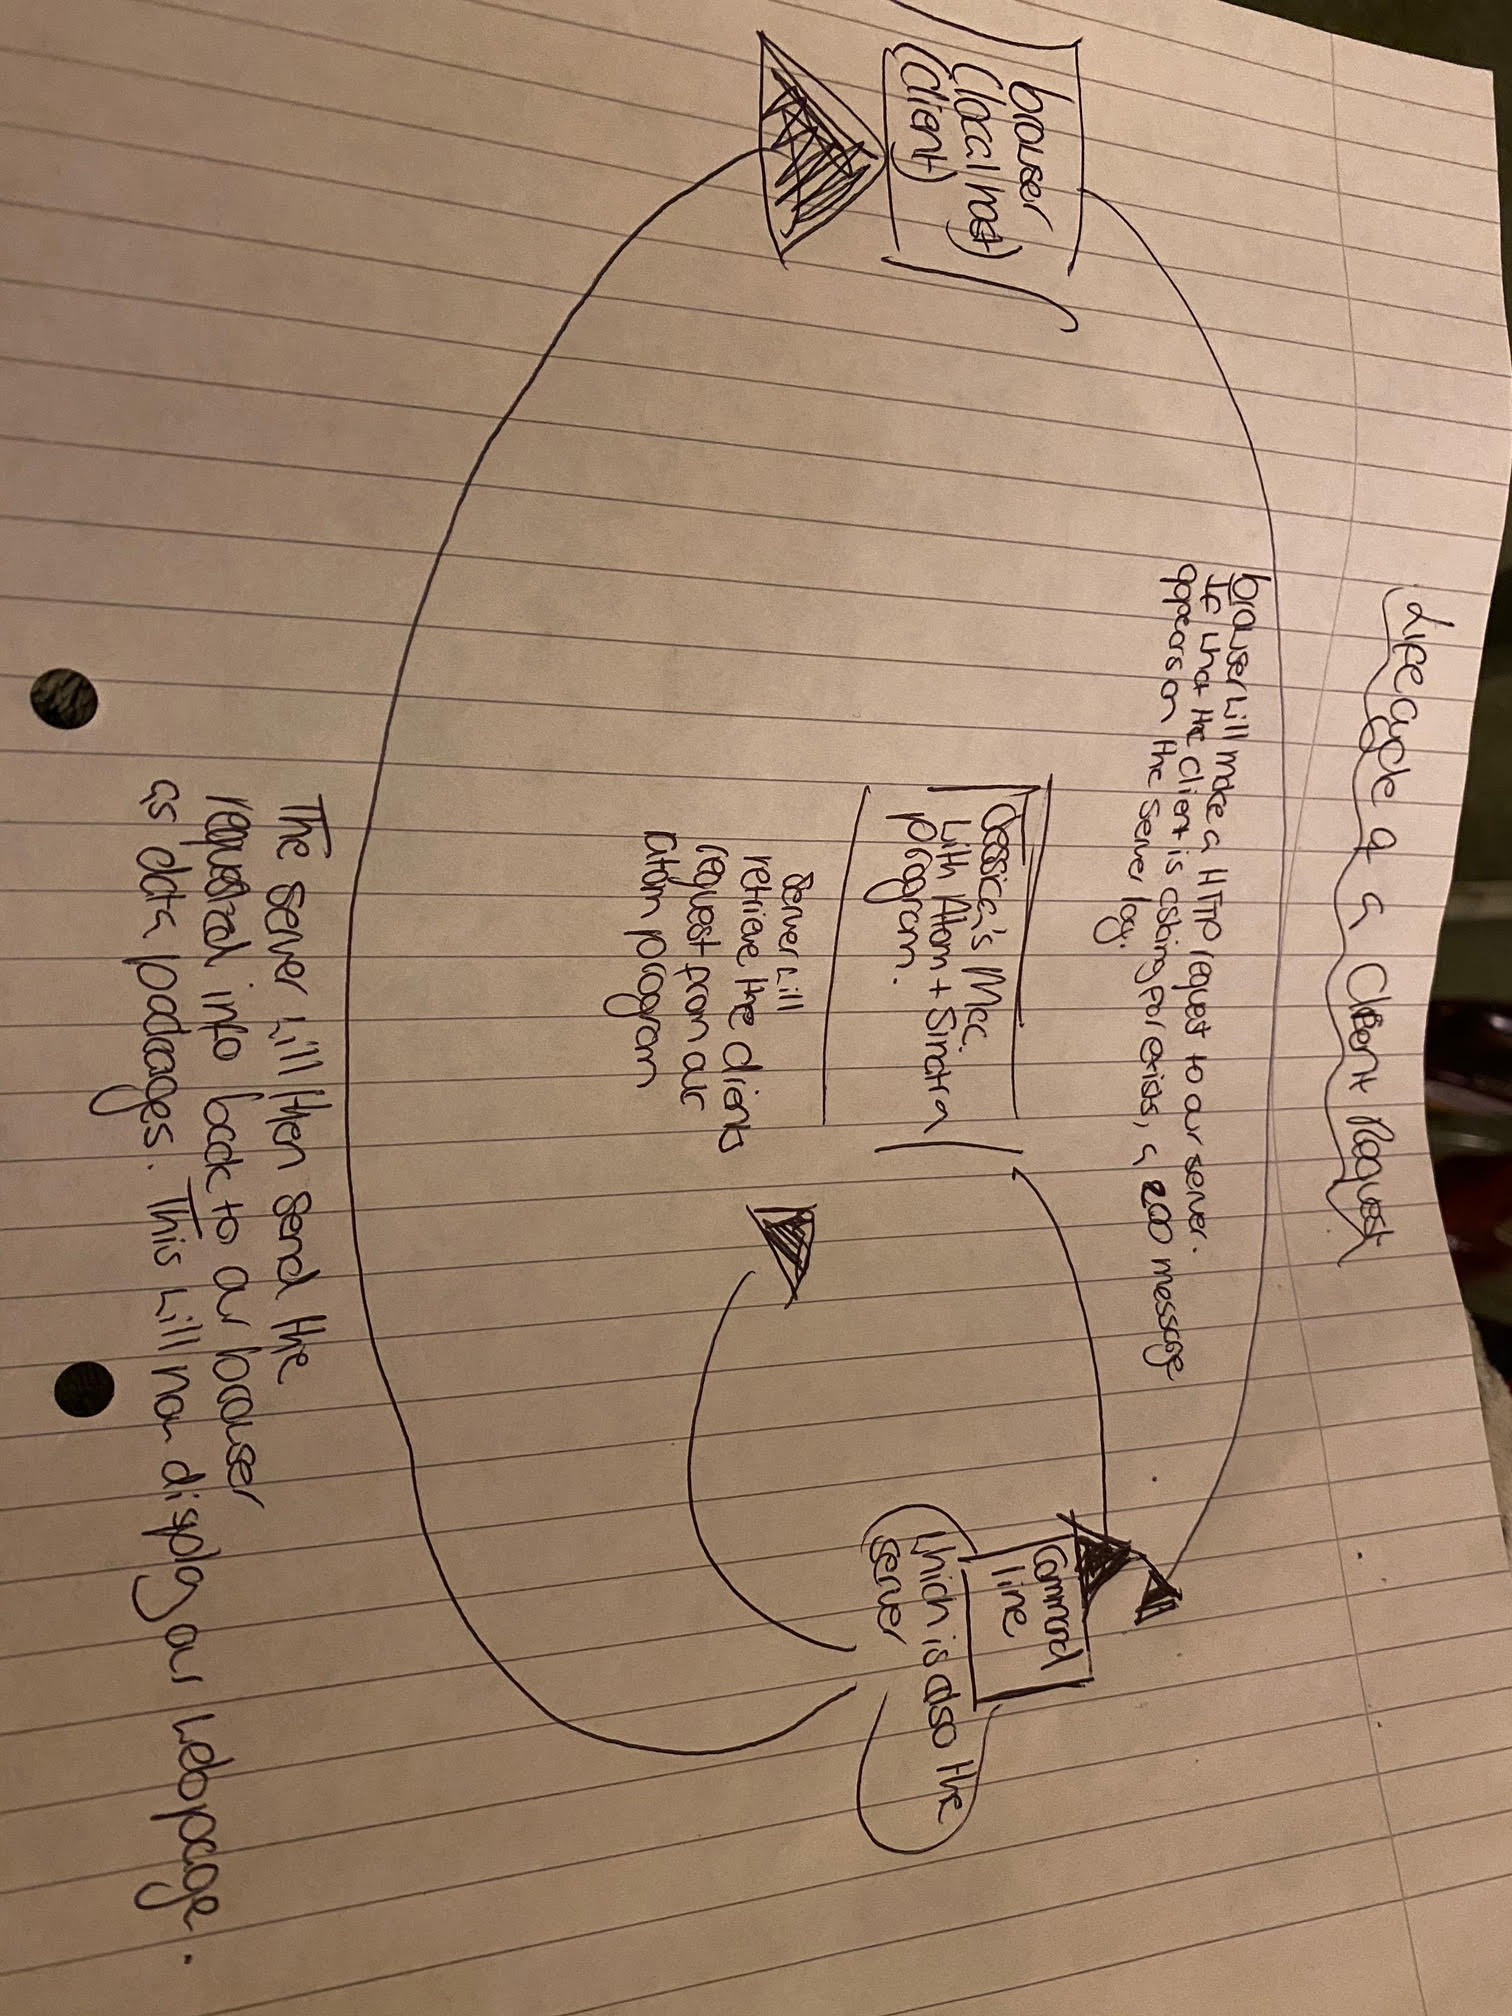 Lifecycle of a Client Request
browser will make a HTTP request to our server.
If what the client is asking for exists, a 200 message
appears on the server log.
browser
(local host)
(client)
Jessica's Mac.
with Atom + Sinatra
program.
server will
retrieve the clients
request from our
atom program
Command
line
which is also the
server
The server will then send the
requested info back to our browser
as data packages. This will now display our webpage.